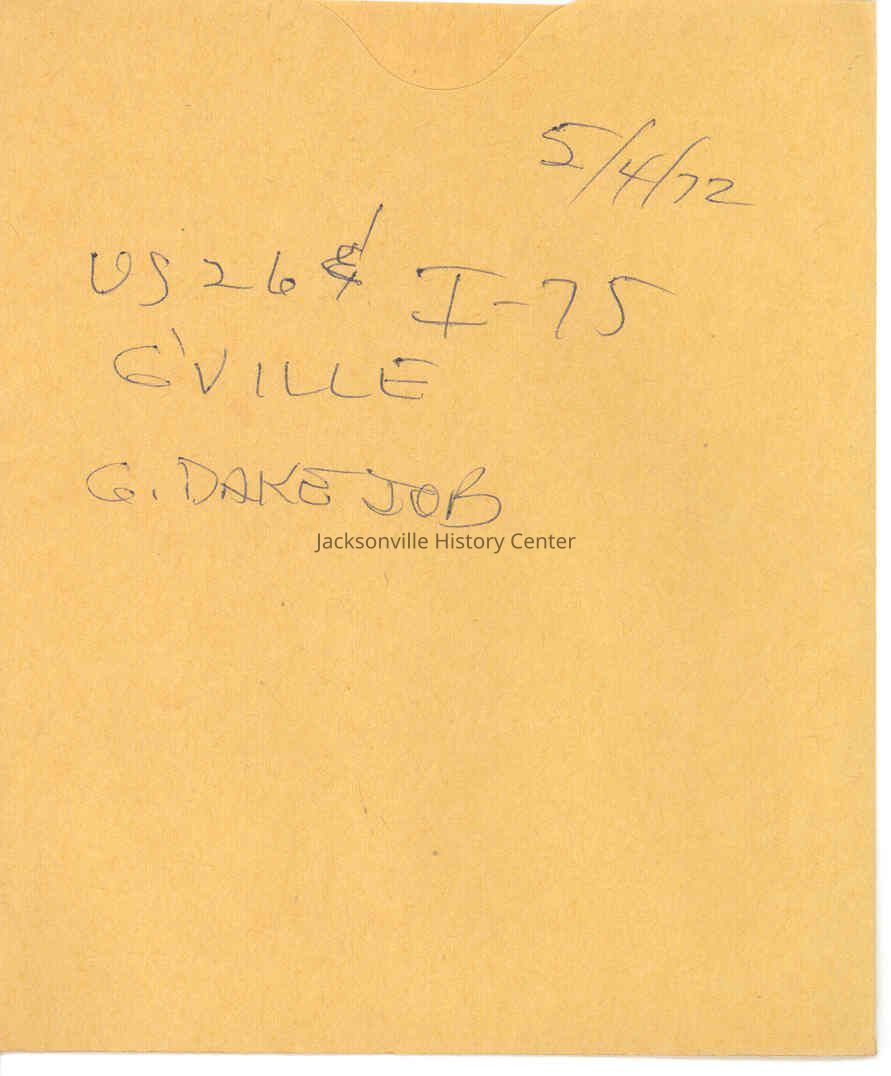 5/4/72
US 26 & I-75
G'VILLE
G. DAKE JOB
Jacksonville History Center